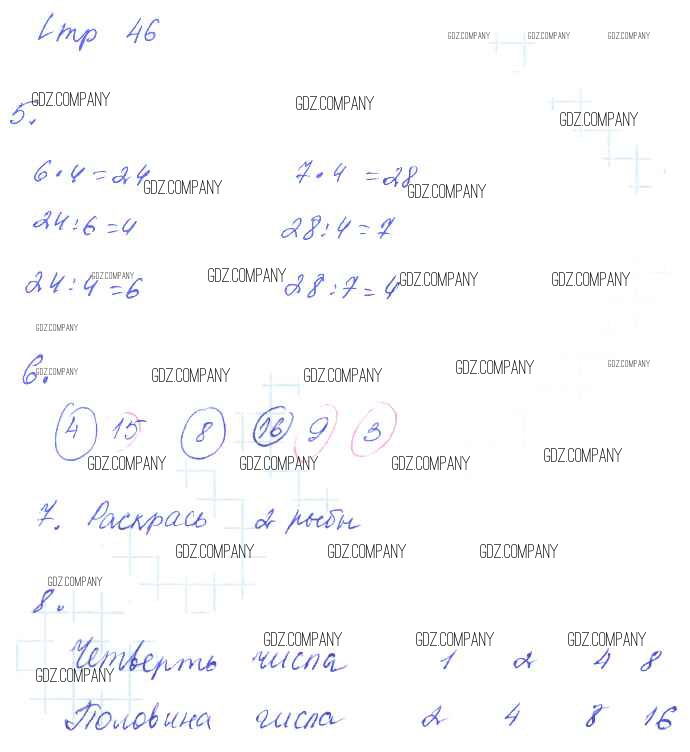 Стр 46
GDZ.COMPANY GDZ.COMPANY GDZ.COMPANY
GDZ.COMPANY GDZ.COMPANY GDZ.COMPANY
5.
6·4=24 7·4=28
GDZ.COMPANY GDZ.COMPANY
24:6=4 28:4=7
GDZ.COMPANY GDZ.COMPANY GDZ.COMPANY GDZ.COMPANY
24:4=6 28:7=4
GDZ.COMPANY
6. GDZ.COMPANY GDZ.COMPANY GDZ.COMPANY GDZ.COMPANY GDZ.COMPANY
4 15 8 16 9 3
GDZ.COMPANY GDZ.COMPANY GDZ.COMPANY GDZ.COMPANY
7. Раскрась 2 рыбы
GDZ.COMPANY GDZ.COMPANY GDZ.COMPANY
GDZ.COMPANY
8.
GDZ.COMPANY GDZ.COMPANY GDZ.COMPANY
Четверть числа 1 2 4 8
GDZ.COMPANY
Половина числа 2 4 8 16